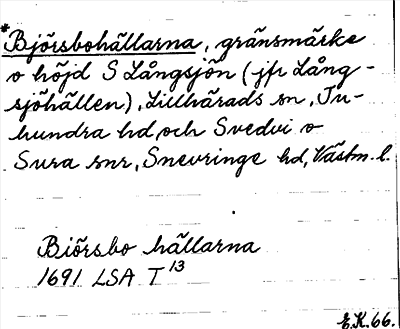 *Björsbohällarna, gränsmärke
o höjd S Långsjön (jfr Lång-
sjöhällen), Lillhärads sn, Tu-
hundra hd, och Svedvi o
Sura snr, Snevringe hd, Västm. l.
Biörsbo hällarna
1691 LSA T 13
E.K. 66.